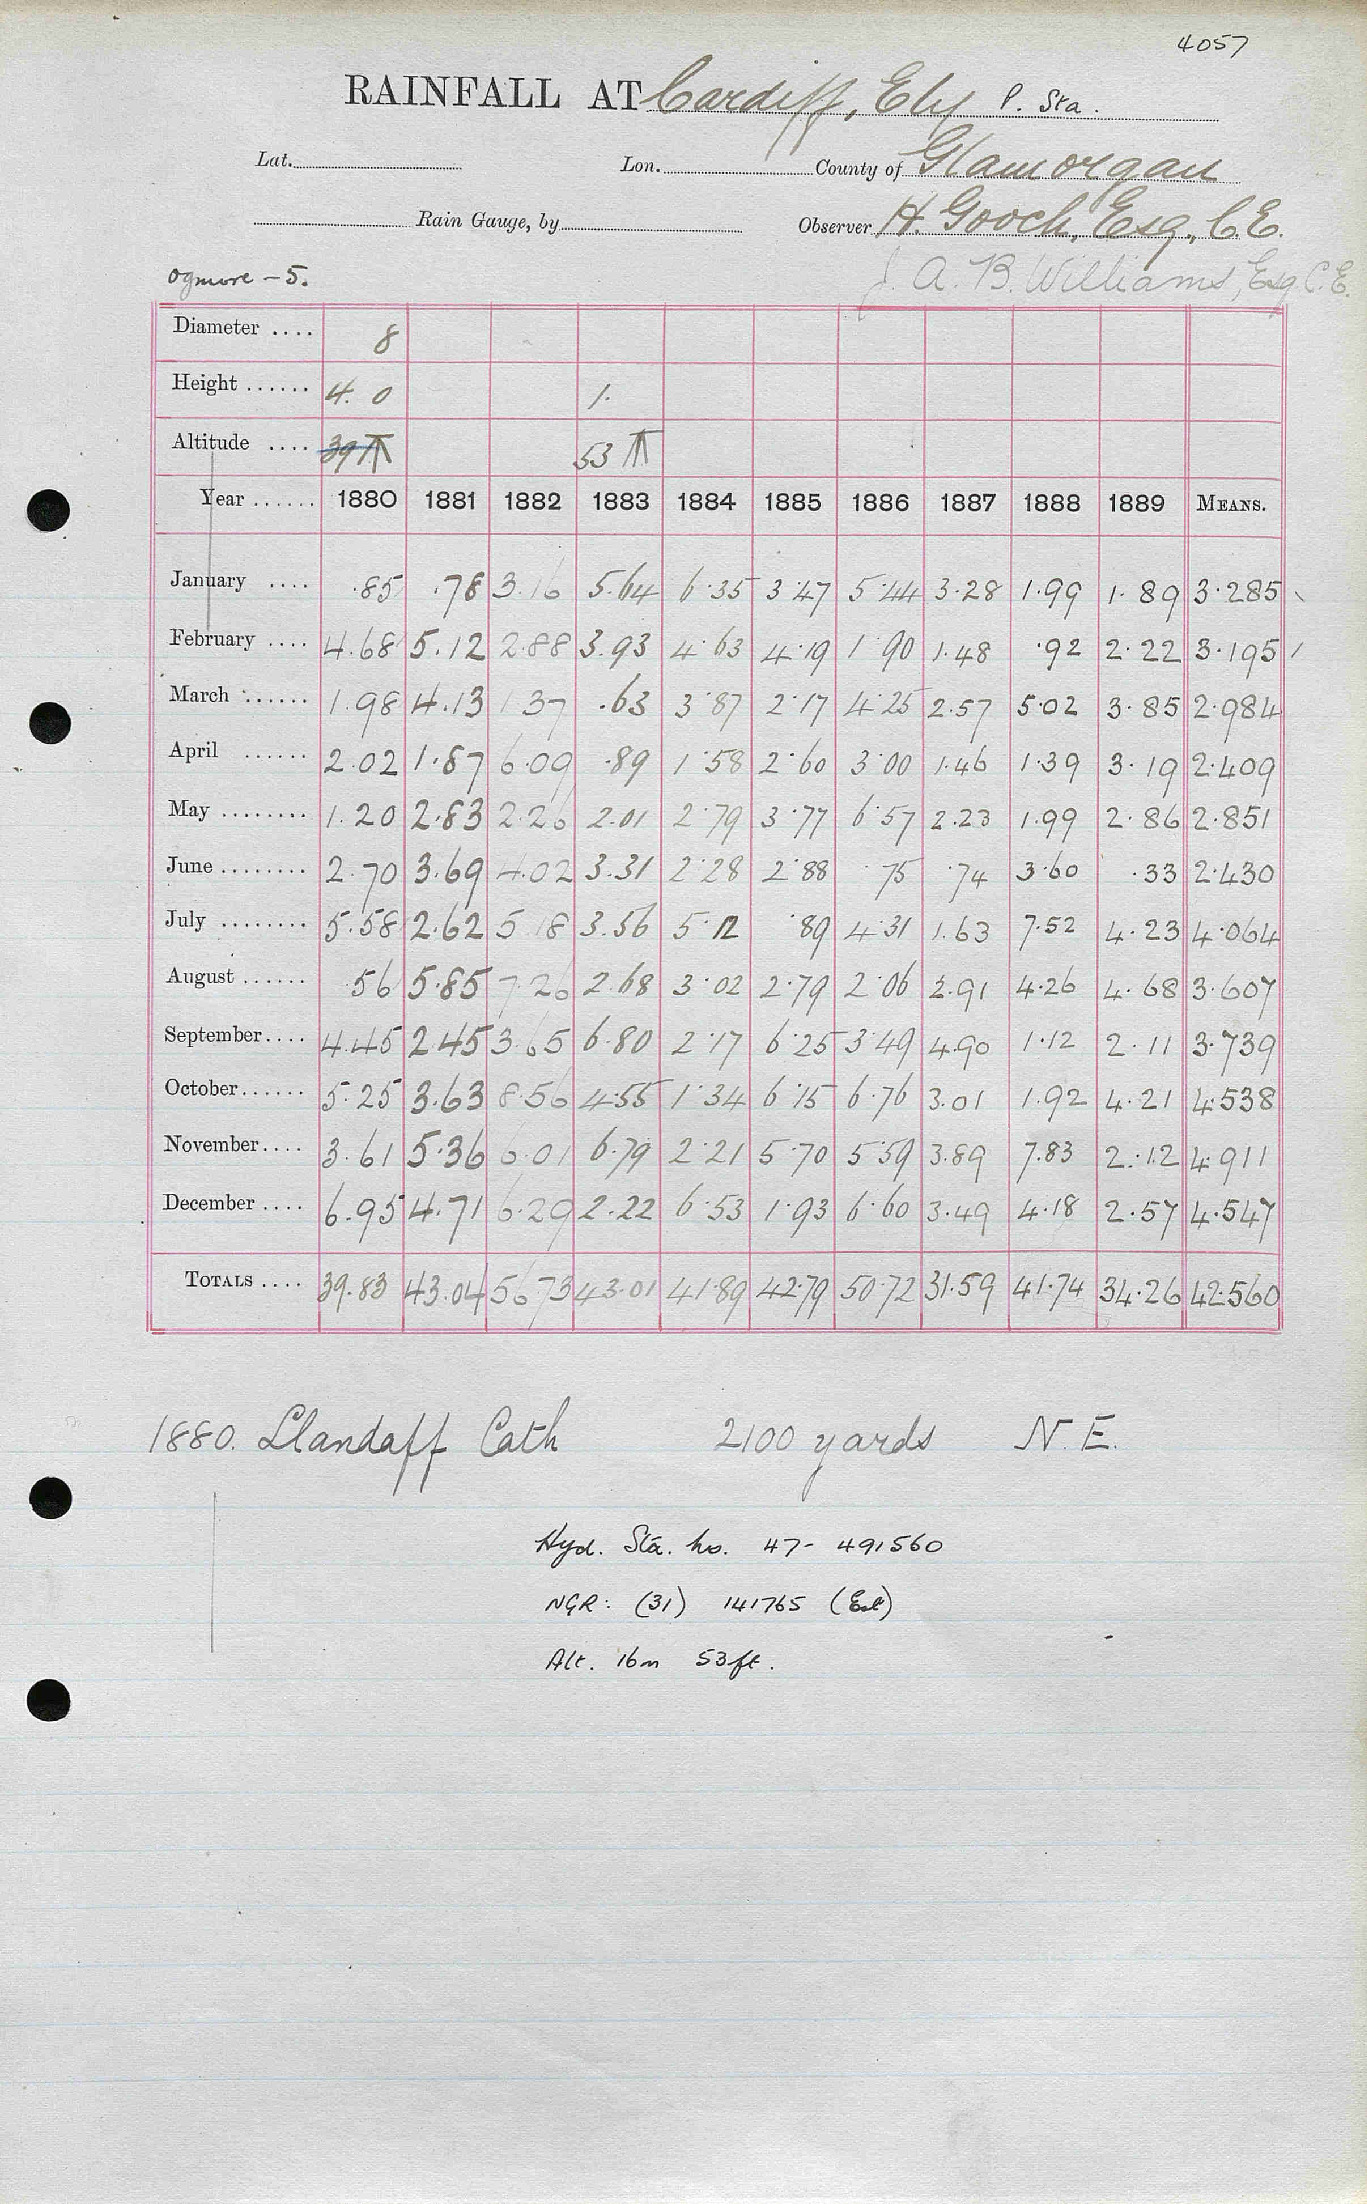 4057
RAINFALL AT Cardiff, Ely P. Sta.
Lat. Lon. County of Glamorgan
Rain Gauge, by Observer H. Gooch, Esq., C.E.
Ogmore - 5. J. A. B. Williams, Esq. C.E.
Diameter .... 8
Height ...... 4. 0 1.
Altitude .... 39 53
Year ...... 1880 1881 1882 1883 1884 1885 1886 1887 1888 1889 MEANS.
January .... .85 .78 3.16 5.64 6.35 3.47 5.44 3.28 1.99 1.89 3.285
February .... 4.68 5.12 2.88 3.93 4.63 4.19 1.90 1.48 .92 2.22 3.195
March ...... 1.98 4.13 1.37 .63 3.87 2.17 4.25 2.57 5.02 3.85 2.984
April ...... 2.02 1.87 6.09 .89 1.58 2.60 3.00 1.46 1.39 3.19 2.409
May ........ 1.20 2.83 2.26 2.01 2.79 3.77 6.57 2.23 1.99 2.86 2.851
June ........ 2.70 3.69 4.02 3.31 2.28 2.88 75 .74 3.60 .33 2.430
July ........ 5.58 2.62 5.18 3.56 5.12 .89 4.31 1.63 7.52 4.23 4.064
August ...... .56 5.85 7.26 2.68 3.02 2.79 2.06 2.91 4.26 4.68 3.607
September.... 4.45 2.45 3.65 6.80 2.17 6.25 3.49 4.90 1.12 2.11 3.739
October...... 5.25 3.63 8.56 4.55 1.34 6.15 6.76 3.01 1.92 4.21 4.538
November.... 3.61 5.36 6.01 6.79 2.21 5.70 5.59 3.89 7.83 2.12 4.911
December .... 6.95 4.71 6.29 2.22 6.53 1.93 6.60 3.49 4.18 2.57 4.547
TOTALS .... 39.83 43.04 56.73 43.01 41.89 42.79 50.72 31.59 41.74 34.26 42.560
1880. Llandaff Cath 2100 yards N.E.
Hyd. Sta. No. 47- 491560
NGR: (31) 141765 (Est)
Alt. 16m 53ft.